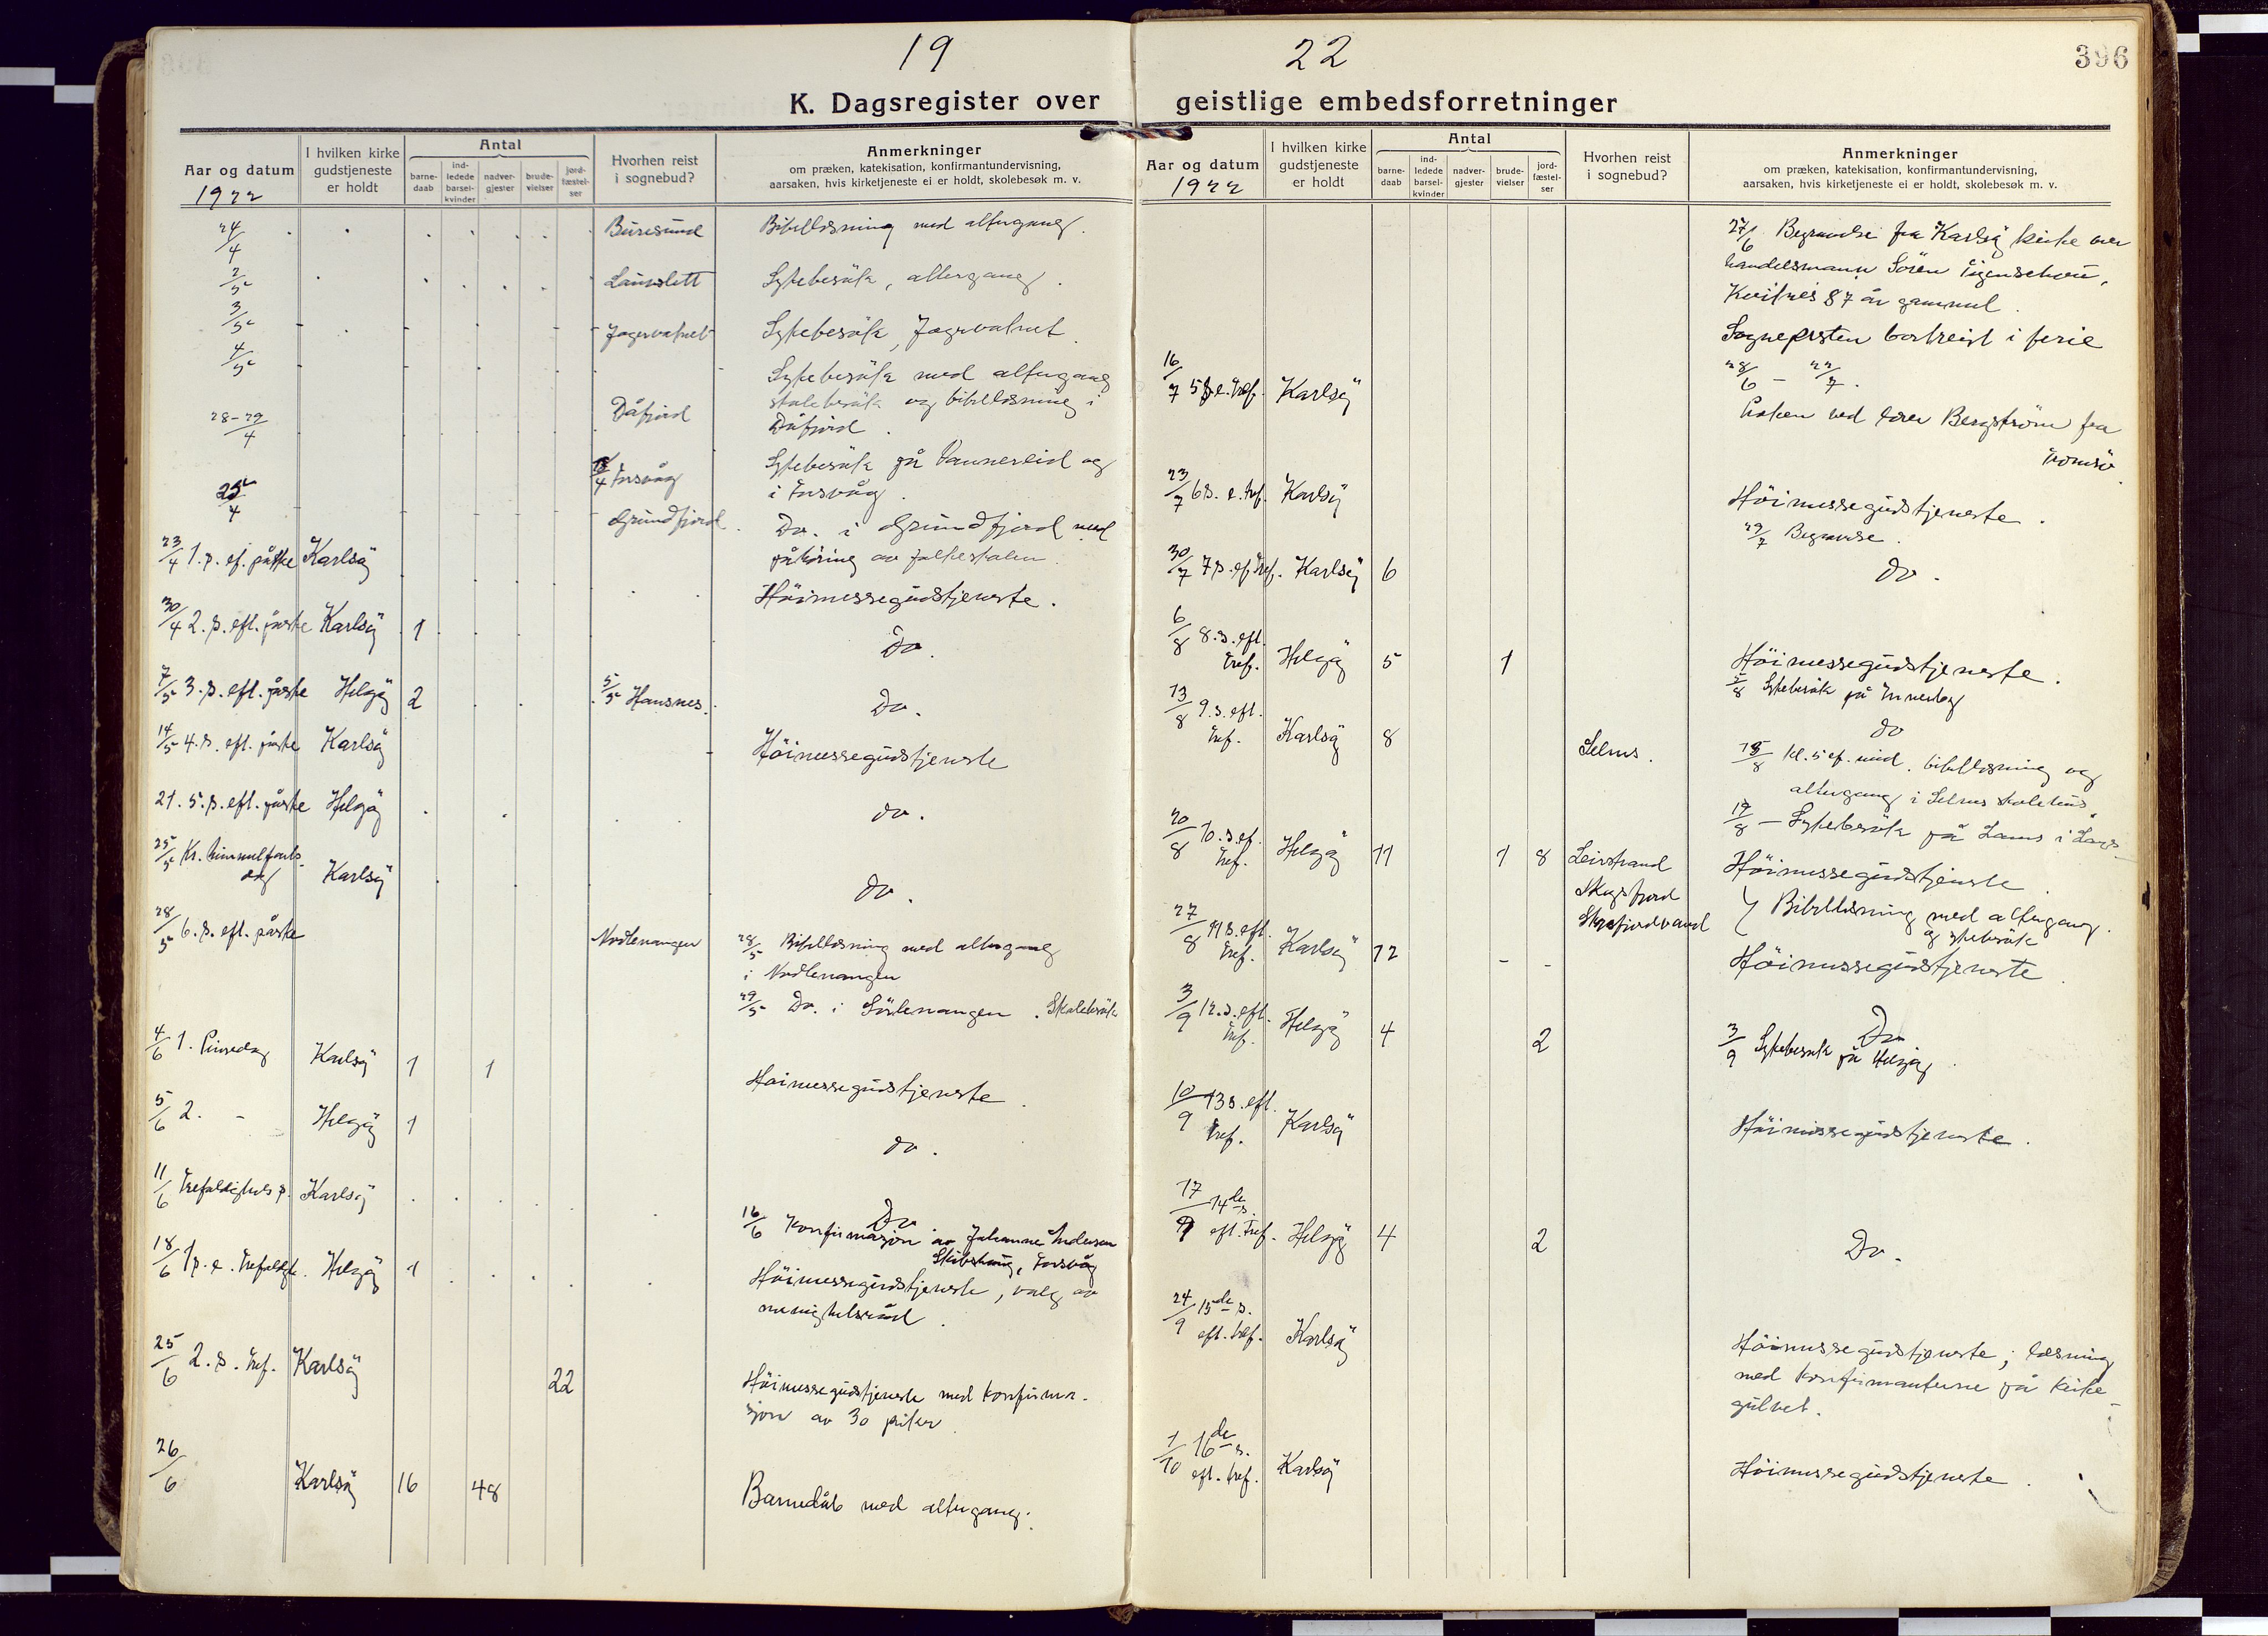 19 22
396
K. Dagsregister over geistlige embedsforretninger
Aar og datum
1922
I hvilken kirke gudstjeneste er holdt
Antal
barne-daab
ind-ledede barsel-kvinder
nadver-gjester
brude-vielser
jord-fæstel-ser
Hvorhen reist i sognebud?
Anmerkninger
om præken, katekisation, konfirmantundervisning,
aarsaken, hvis kirketjeneste ei er holdt, skolebesøk m. v.
24/4 Buresund Bibellæsning med altergang.
2/5 Launslett Sykebesök, altergang.
3/5 Jægervatnet Sykebesök, Jægervatnet.
4/5 Sykebesök med altergang
28-29/4 Dåfjord skolebesök og bibellæsning i
Dåfjord.
/4 Torsvåg Sykebesök på Vannereid og
i Torsvåg.
25/4 Grundfjord. Do. i Grundfjord med
påhöring av folketalen.
23/4 1. s. ef. påske Karlsöy Höimessegudstjeneste.
30/4 2. s. eft. påske Karlsöy 1 Do.
7/5 3. s. eft. påske Helgöy 2 5/5 Hansnes. Do.
14/5 4. s. eft. påske Karlsöy Höimessegudstjeneste
21. 5. s. eft. påske Helgöy do.
25/5 Kr. himmelfarts-
dag Karlsöy do.
28/5 6. s. eft. påske Nordlenangen 28/5 Bibellæsning med altergang
i Nordlenangen
29/5 Do. i Sörlenangen. Skolebesök
4/6 1. Pinsedag Karlsöy 1 1 Höimessegudstjeneste.
5/6 2. - Helgöy 1 do.
11/6 Trefoldighets s. Karlsöy Do
16/6 Konfirmasjon av Johanne Andersen
Skibshaug, Torsvåg
18/6 1 s. e. Trefoldigh. Helgöy 1 Höimessegudstjeneste, valg av
menighetsråd.
25/6 2. s. tref. Karlsöy 22 Höimessegudstjeneste med konfirma-
sjon av 30 piker.
26/6 Karlsöy 16 48 Barnedåb med altergang.
Aar og datum
1922
I hvilken kirke gudstjeneste er holdt
Antal
barne-daab
ind-ledede barsel-kvinder
nadver-gjester
brude-vielser
jord-fæstel-ser
Hvorhen reist i sognebud?
Anmerkninger
om præken, katekisation, konfirmantundervisning,
aarsaken, hvis kirketjeneste ei er holdt, skolebesøk m. v.
27/6 Begravelse fra Karlsöy kirke over
handelsmann Sören Figenschou,
Kvitnes 87 år gammel.
Sognepresten bortreist i ferie
28/6 - 22/7.
16/7 5 s. e. tref. Karlsöy ved lærer Bergström fra
Tromsö.
23/7 6 s. e. tref. Karlsöy Höimessegudstjeneste.
29/7 Begravelse.
30/7 7 s. ef tref. Karlsöy 6 do.
6/8 8. s. eft.
tref. Helgöy 5 1 Höimessegudstjeneste.
5/8 Sykebesök på
13/8 9. s. eft.
tref. Karlsöy 8 Selnes. do
15/8 kl. 5 ef. mid. bibellæsning og
altergang i Selnes skolehus.
19/8 - Sykebesök på
20/8 10. s. ef.
tref. Helgöy 11 1 8 Leirstrand Höimessegudstjeneste.
Skogsfjord
Skogsfjordvand } Bibellæsning med altergang.
og sykebesök
27/8 11 s. eft.
tref. Karlsöy 12 - - Höimessegudstjeneste.
3/9 12. s. eft.
tref. Helgöy 4 2 Do
3/9 Sykebesök på Helgöy.
10/9 13 s. eft.
tref. Karlsöy Höimessegudstjeneste.
17/9 14de s.
eft. tref. Helgöy 4 2 Do.
24/9 15de s.
eft. tref. Karlsöy Höimessegudstjeneste; læsning
med konfirmanterne på kirke-
gulvet.
1/10 16de s.
eft. tref. Karlsöy Höimessegudstjeneste.